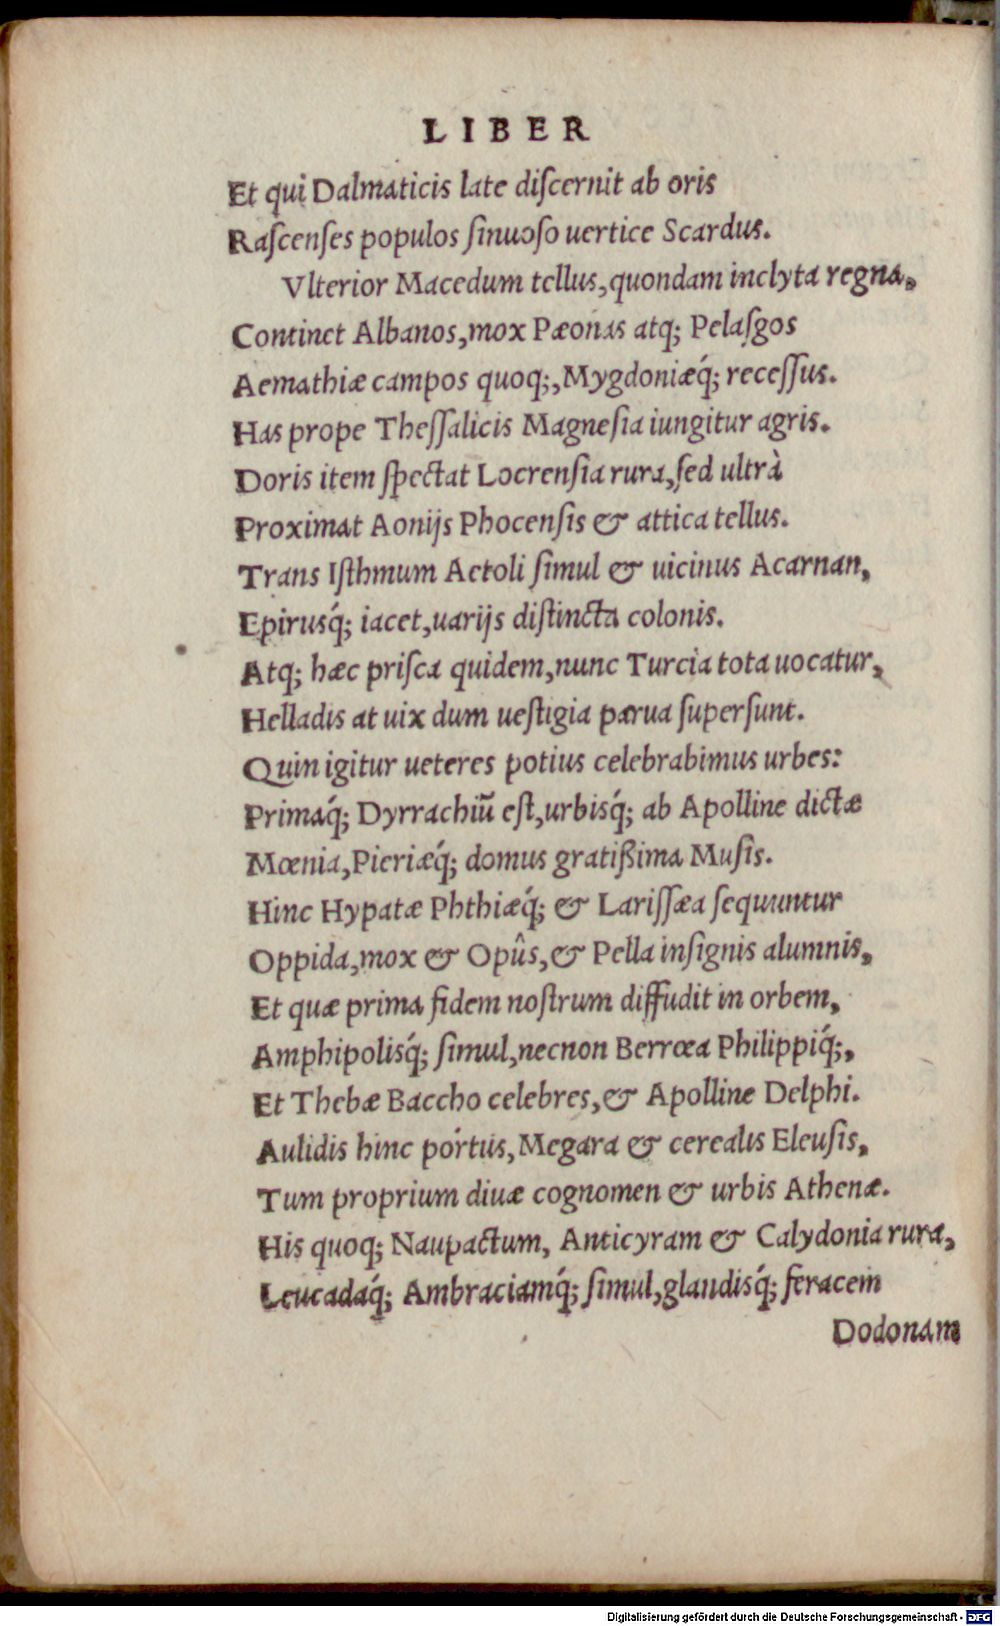 LIBER
Et qui Dalmaticis late diſcernit ab oris
Raſcenſes populos ſinuoſo uertice Scardus.
Vlterior Macedum tellus, quondam inclyta regna,
Continet Albanos, mox Pæonas atq; Pelaſgos
Aemathiæ campos quoq;, Mygdoniæq́; receſſus.
Has prope Theſſalicis Magneſia iungitur agris.
Doris item ſpectat Locrenſia rura, ſed ultrà
Proximat Aonijs Phocenſis & attica tellus.
Trans Iſthmum Aetoli ſimul & uicinus Acarnan,
Epirusq́; iacet, uarijs diſtincta colonis.
Atq; hæc priſca quidem, nunc Turcia tota uocatur,
Helladis at uix dum ueſtigia parua ſuperſunt.
Quin igitur ueteres potius celebrabimus urbes:
Primaq́; Dyrrachiũ eſt, urbisq́; ab Apolline dictæ
Mœnia, Pieriæq́; domus gratißima Muſis.
Hinc Hypatæ Phthiæq́; & Lariſſæa ſequuntur
Oppida, mox & Opûs, & Pella inſignis alumnis,
Et quæ prima fidem noſtrum diffudit in orbem,
Amphipolisq́; ſimul, necnon Berrœa Philippiq́;,
Et Thebæ Baccho celebres, & Apolline Delphi.
Aulidis hinc portus, Megara & cerealis Eleuſis,
Tum proprium diuæ cognomen & urbis Athenæ.
His quoq; Naupactum, Anticyram & Calydonia rura,
Leucadaq́; Ambraciamq́; ſimul, glandisq́; feracem
Dodonam
Digitalisierung gefördert durch die Deutsche Forschungsgemeinschaft - DFG